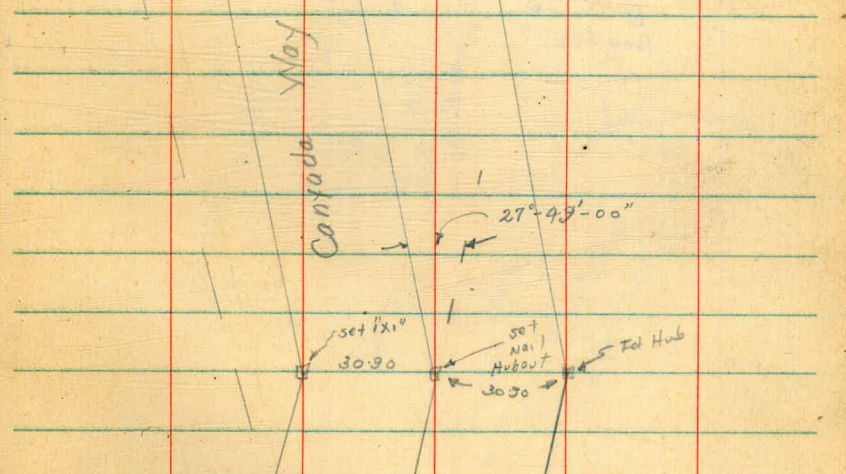 Canyada Way
27°-49'-00"
set 1"x1"
30.90
set
Nail
Hubout
30.90
Fd Hub